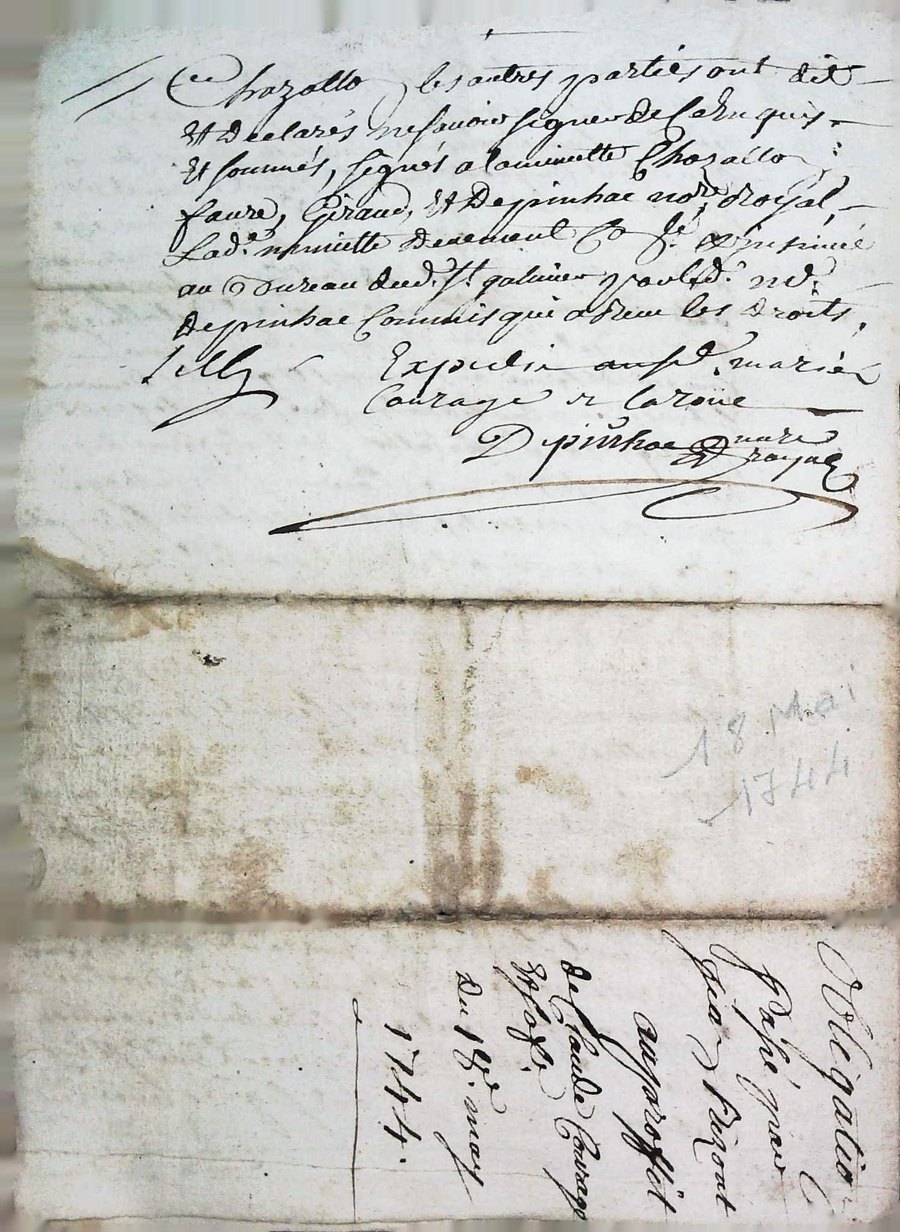 Chazallo, les autres parties ont dit
Et Declarés ne scavoir signer de ce Enquis
Et sommés, signés a la minutte Chazallo
faure, Giraud, Et Depinhac notre. Royal,
Lad.e minutte deuement Co. lé. & insinué
au Bureau dud. St. galmier par led. no.
Depinhac Commis qui a Reçu les droits,
Expedié aux sd. mariés
Courage et laroüe
Depinhac nore
Royal
18 Mai
1744
Obligation
Passé par
Jean
au proffit
de Claude Courage
Et sa fe.
Du 18e. may
1744.